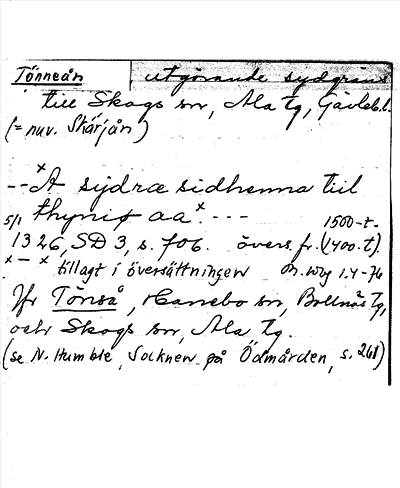 Tönneån utgörande sydgräns
till Skogs sn, Ala tg, Gävleb.l.
(= nuv. Skärjån)
-- x A sydræ sidhenna til
thyniø aa. x ---
5/1 1326, SD 3, s. 706. övers. fr. 1500-t. (1400.t).
x - x tillagt i översättningen On. wbg 1.4-76
Jfr Tönså, Hanebo sn, Bollnäs tg,
och Skogs sn, Ala tg.
(se N. Humble, Socknen på Ödmården, s. 261)